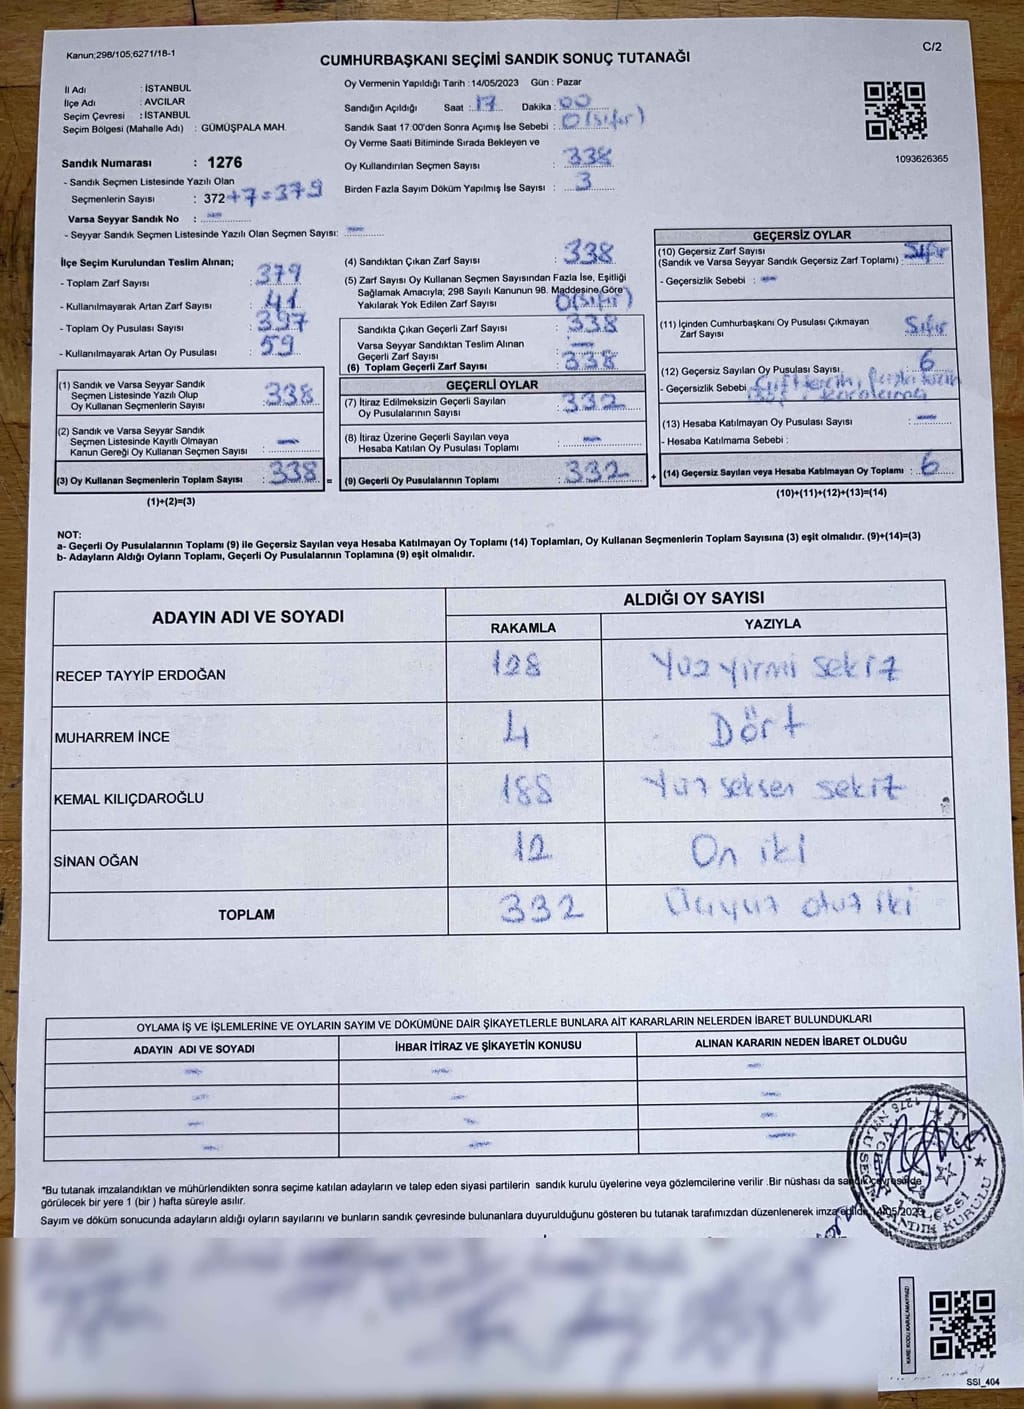 Kanun;298/105;6271/18-1
C/2
CUMHURBAŞKANI SEÇİMİ SANDIK SONUÇ TUTANAĞI
İl Adı : İSTANBUL
İlçe Adı : AVCILAR
Seçim Çevresi : İSTANBUL
Seçim Bölgesi (Mahalle Adı) : GÜMÜŞPALA MAH.
Sandık Numarası : 1276
- Sandık Seçmen Listesinde Yazılı Olan
Seçmenlerin Sayısı : 372+7=379
Varsa Seyyar Sandık No : —
- Seyyar Sandık Seçmen Listesinde Yazılı Olan Seçmen Sayısı: —
Oy Vermenin Yapıldığı Tarih : 14/05/2023 Gün : Pazar
Sandığın Açıldığı Saat : 17 Dakika : 00
Sandık Saat 17:00'den Sonra Açımış İse Sebebi : 0(sıfır)
Oy Verme Saati Bitiminde Sırada Bekleyen ve
Oy Kullandırılan Seçmen Sayısı : 338
Birden Fazla Sayım Döküm Yapılmış İse Sayısı : 3
1093626365
İlçe Seçim Kurulundan Teslim Alınan;
- Toplam Zarf Sayısı : 379
- Kullanılmayarak Artan Zarf Sayısı : 41
- Toplam Oy Pusulası Sayısı : 397
- Kullanılmayarak Artan Oy Pusulası : 59
(1) Sandık ve Varsa Seyyar Sandık
Seçmen Listesinde Yazılı Olup
Oy Kullanan Seçmenlerin Sayısı : 338
(2) Sandık ve Varsa Seyyar Sandık
Seçmen Listesinde Kayıtlı Olmayan
Kanun Gereği Oy Kullanan Seçmen Sayısı : —
(3) Oy Kullanan Seçmenlerin Toplam Sayısı : 338 =
(1)+(2)=(3)
(4) Sandıktan Çıkan Zarf Sayısı : 338
(5) Zarf Sayısı Oy Kullanan Seçmen Sayısından Fazla İse, Eşitliği
Sağlamak Amacıyla; 298 Sayılı Kanunun 98. Maddesine Göre
Yakılarak Yok Edilen Zarf Sayısı : 0(sıfır)
Sandıkta Çıkan Geçerli Zarf Sayısı : 338
Varsa Seyyar Sandıktan Teslim Alınan
Geçerli Zarf Sayısı : —
(6) Toplam Geçerli Zarf Sayısı : 338
GEÇERLİ OYLAR
(7) İtiraz Edilmeksizin Geçerli Sayılan
Oy Pusulalarının Sayısı : 332
(8) İtiraz Üzerine Geçerli Sayılan veya
Hesaba Katılan Oy Pusulası Toplamı : —
(9) Geçerli Oy Pusulalarının Toplamı : 332 +
GEÇERSİZ OYLAR
(10) Geçersiz Zarf Sayısı
(Sandık ve Varsa Seyyar Sandık Geçersiz Zarf Toplamı) : Sıfır
- Geçersizlik Sebebi : —
(11) İçinden Cumhurbaşkanı Oy Pusulası Çıkmayan
Zarf Sayısı : Sıfır
(12) Geçersiz Sayılan Oy Pusulası Sayısı : 6
- Geçersizlik Sebebi : Çift tercih,
(13) Hesaba Katılmayan Oy Pusulası Sayısı : —
- Hesaba Katılmama Sebebi :
(14) Geçersiz Sayılan veya Hesaba Katılmayan Oy Toplamı : 6
(10)+(11)+(12)+(13)=(14)
NOT:
a- Geçerli Oy Pusulalarının Toplamı (9) ile Geçersiz Sayılan veya Hesaba Katılmayan Oy Toplamı (14) Toplamları, Oy Kullanan Seçmenlerin Toplam Sayısına (3) eşit olmalıdır. (9)+(14)=(3)
b- Adayların Aldığı Oyların Toplamı, Geçerli Oy Pusulalarının Toplamına (9) eşit olmalıdır.
ADAYIN ADI VE SOYADI ALDIĞI OY SAYISI
RAKAMLA YAZIYLA
RECEP TAYYİP ERDOĞAN 128 Yüz yirmi sekiz
MUHARREM İNCE 4 Dört
KEMAL KILIÇDAROĞLU 188 Yüz seksen sekiz
SİNAN OĞAN 12 On iki
TOPLAM 332 Üçyüz otuz iki
OYLAMA İŞ VE İŞLEMLERİNE VE OYLARIN SAYIM VE DÖKÜMÜNE DAİR ŞİKAYETLERLE BUNLARA AİT KARARLARIN NELERDEN İBARET BULUNDUKLARI
ADAYIN ADI VE SOYADI İHBAR İTİRAZ VE ŞİKAYETİN KONUSU ALINAN KARARIN NEDEN İBARET OLDUĞU
— — —
— — —
— — —
— — —
*Bu tutanak imzalandıktan ve mühürlendikten sonra seçime katılan adayların ve talep eden siyasi partilerin sandık kurulu üyelerine veya gözlemcilerine verilir .Bir nüshası da sandık çevresinde
görülecek bir yere 1 (bir ) hafta süreyle asılır.
Sayım ve döküm sonucunda adayların aldığı oyların sayılarını ve bunların sandık çevresinde bulunanlara duyurulduğunu gösteren bu tutanak tarafımızdan düzenlenerek imza edildi. 14/05/2023
T.C.
AVCILAR İLÇESİ
1276 NOLU SEÇİM
SANDIK KURULU
KARE KODU KARALAMAYINIZ!
SSI_404